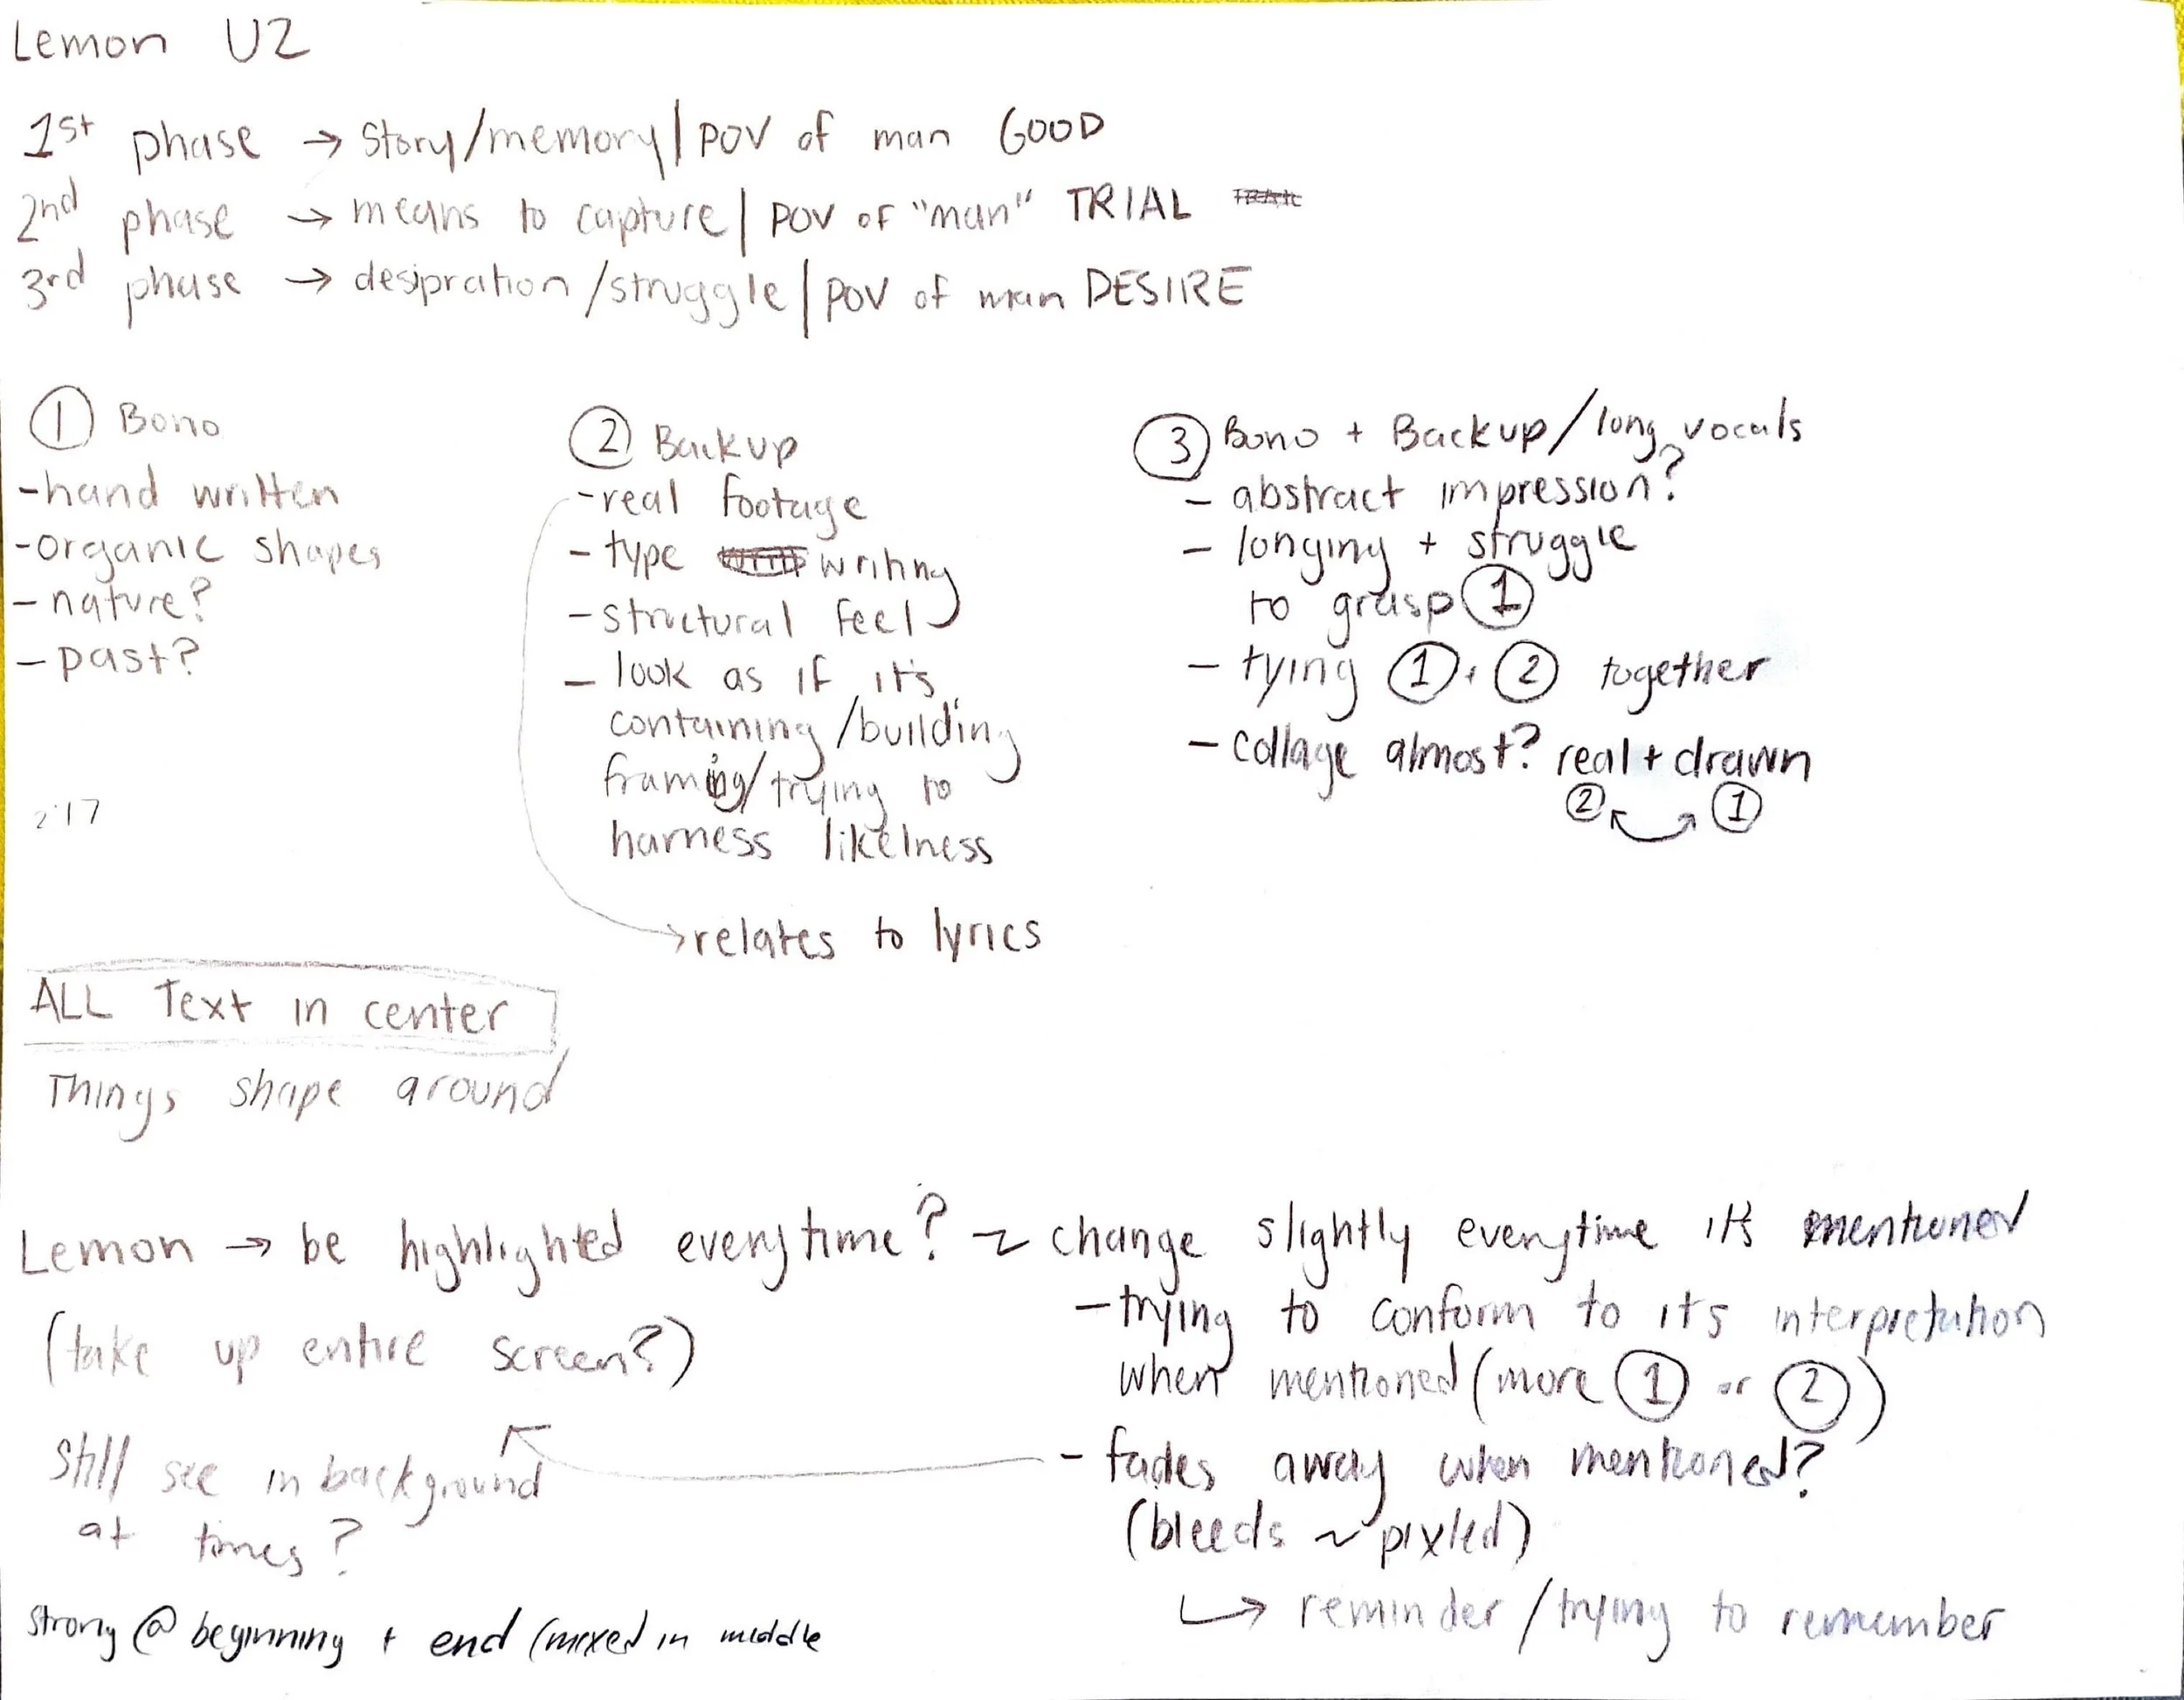 Lemon U2
1st phase → story/memory | POV of man GOOD
2nd phase → means to capture | POV of "man" TRIAL
3rd phase → desipration/struggle | POV of man DESIRE
① Bono
-hand written
-organic shapes
-nature?
-past?
2:17
② Backup
-real footage
-type writing
-structural feel
- look as if it's
containing/building
framing/trying to
harness likelness
→relates to lyrics
③ Bono + Backup/long vocals
- abstract impression?
- longing + struggle
to grasp ①
- tying ① + ② together
- collage almost? real + drawn
② ①
ALL Text in center
Things shape around
Lemon → be highlighted everytime? ~ change slightly everytime it's mentioned
(take up entire screen?)
-trying to conform to its interpretation
when mentioned (more ① or ②)
- fades away when mentioned?
(bleeds ~ pixled)
↳ reminder/trying to remember
Still see in background
at times?
strong @ beginning + end (mixed in middle